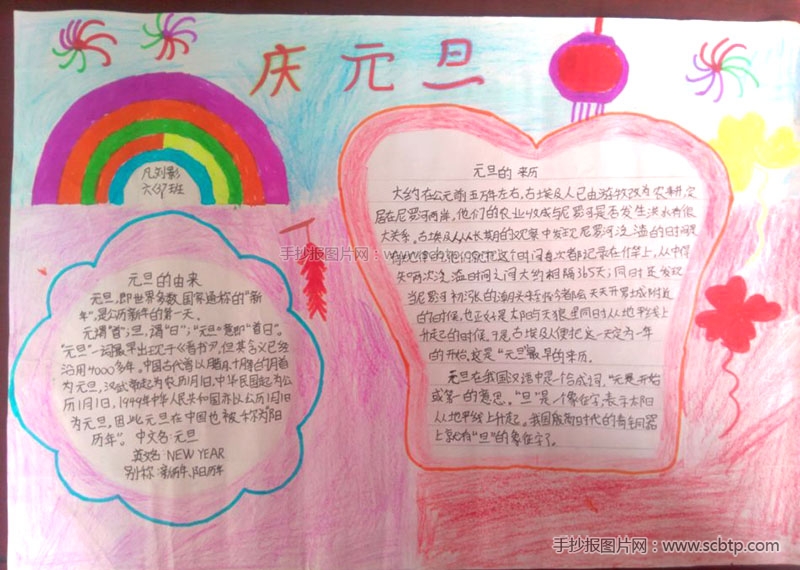 庆元旦
凡刘影
六(3)班
元旦的由来
元旦,即世界多数国家通称的"新
年",是公历新年的第一天。
元谓"首";旦,谓"日";"元旦"意即"首日"。
"元旦"一词最早出现于《晋书》,但其含义已经
沿用4000多年。中国古代曾以腊月、十月等的月首
为元旦,汉武帝起为农历1月1日,中华民国起为公
历1月1日,1949年中华人民共和国亦以公历1月1日
为元旦,因此元旦在中国也被称为"阳
历年"。中文名:元旦
英文名:NEW YEAR
别称:新历年、阳历年
元旦的来历
大约在公元前五万年左右,古埃及人已由游牧改为农耕,定
居在尼罗河两岸,他们的农业收成与尼罗河是否发生洪水有很
大关系。古埃及人从长期的观察中发现尼罗河泛滥的时间是
他们就把这个时间每次都记录在竹竿上,从中得
知两次泛滥时间之间大约相隔365天;同时还发现
当尼罗河初涨的潮头来到今天开罗城附近
的时候,也正好是太阳与天狼星同时从地平线上
升起的时候。于是,古埃及人便把这一天定为一年
的开始,这是"元旦"最早的来历。
元旦在我国汉语中是一个合成词,"元"是开始
或第一的意思,"旦"是一个象形字,表示太阳
从地平线上升起。我国殷商时代的青铜器
上就有"旦"的象形字了。
手抄报图片网:www.scbtp.com
手抄报图片网:www.scbtp.com